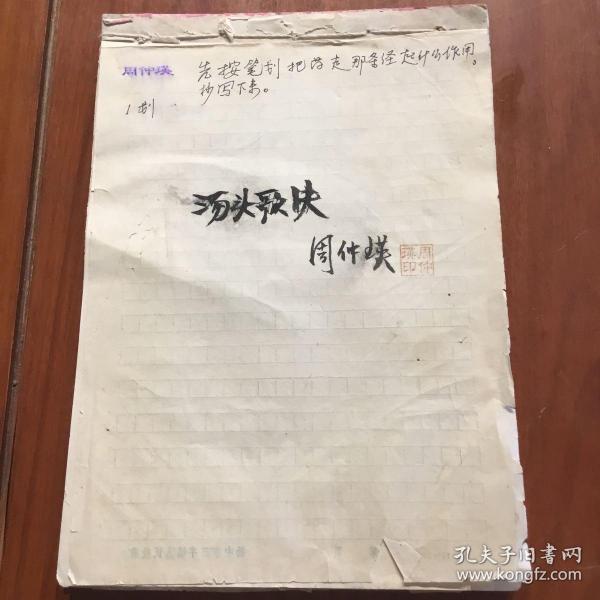 周仲瑛
先按笔划把药走那条经起什么作用。
抄写下来。
1划
汤头歌诀
周仲瑛
周仲瑛印
孔夫子旧书网
www.kongfz.com